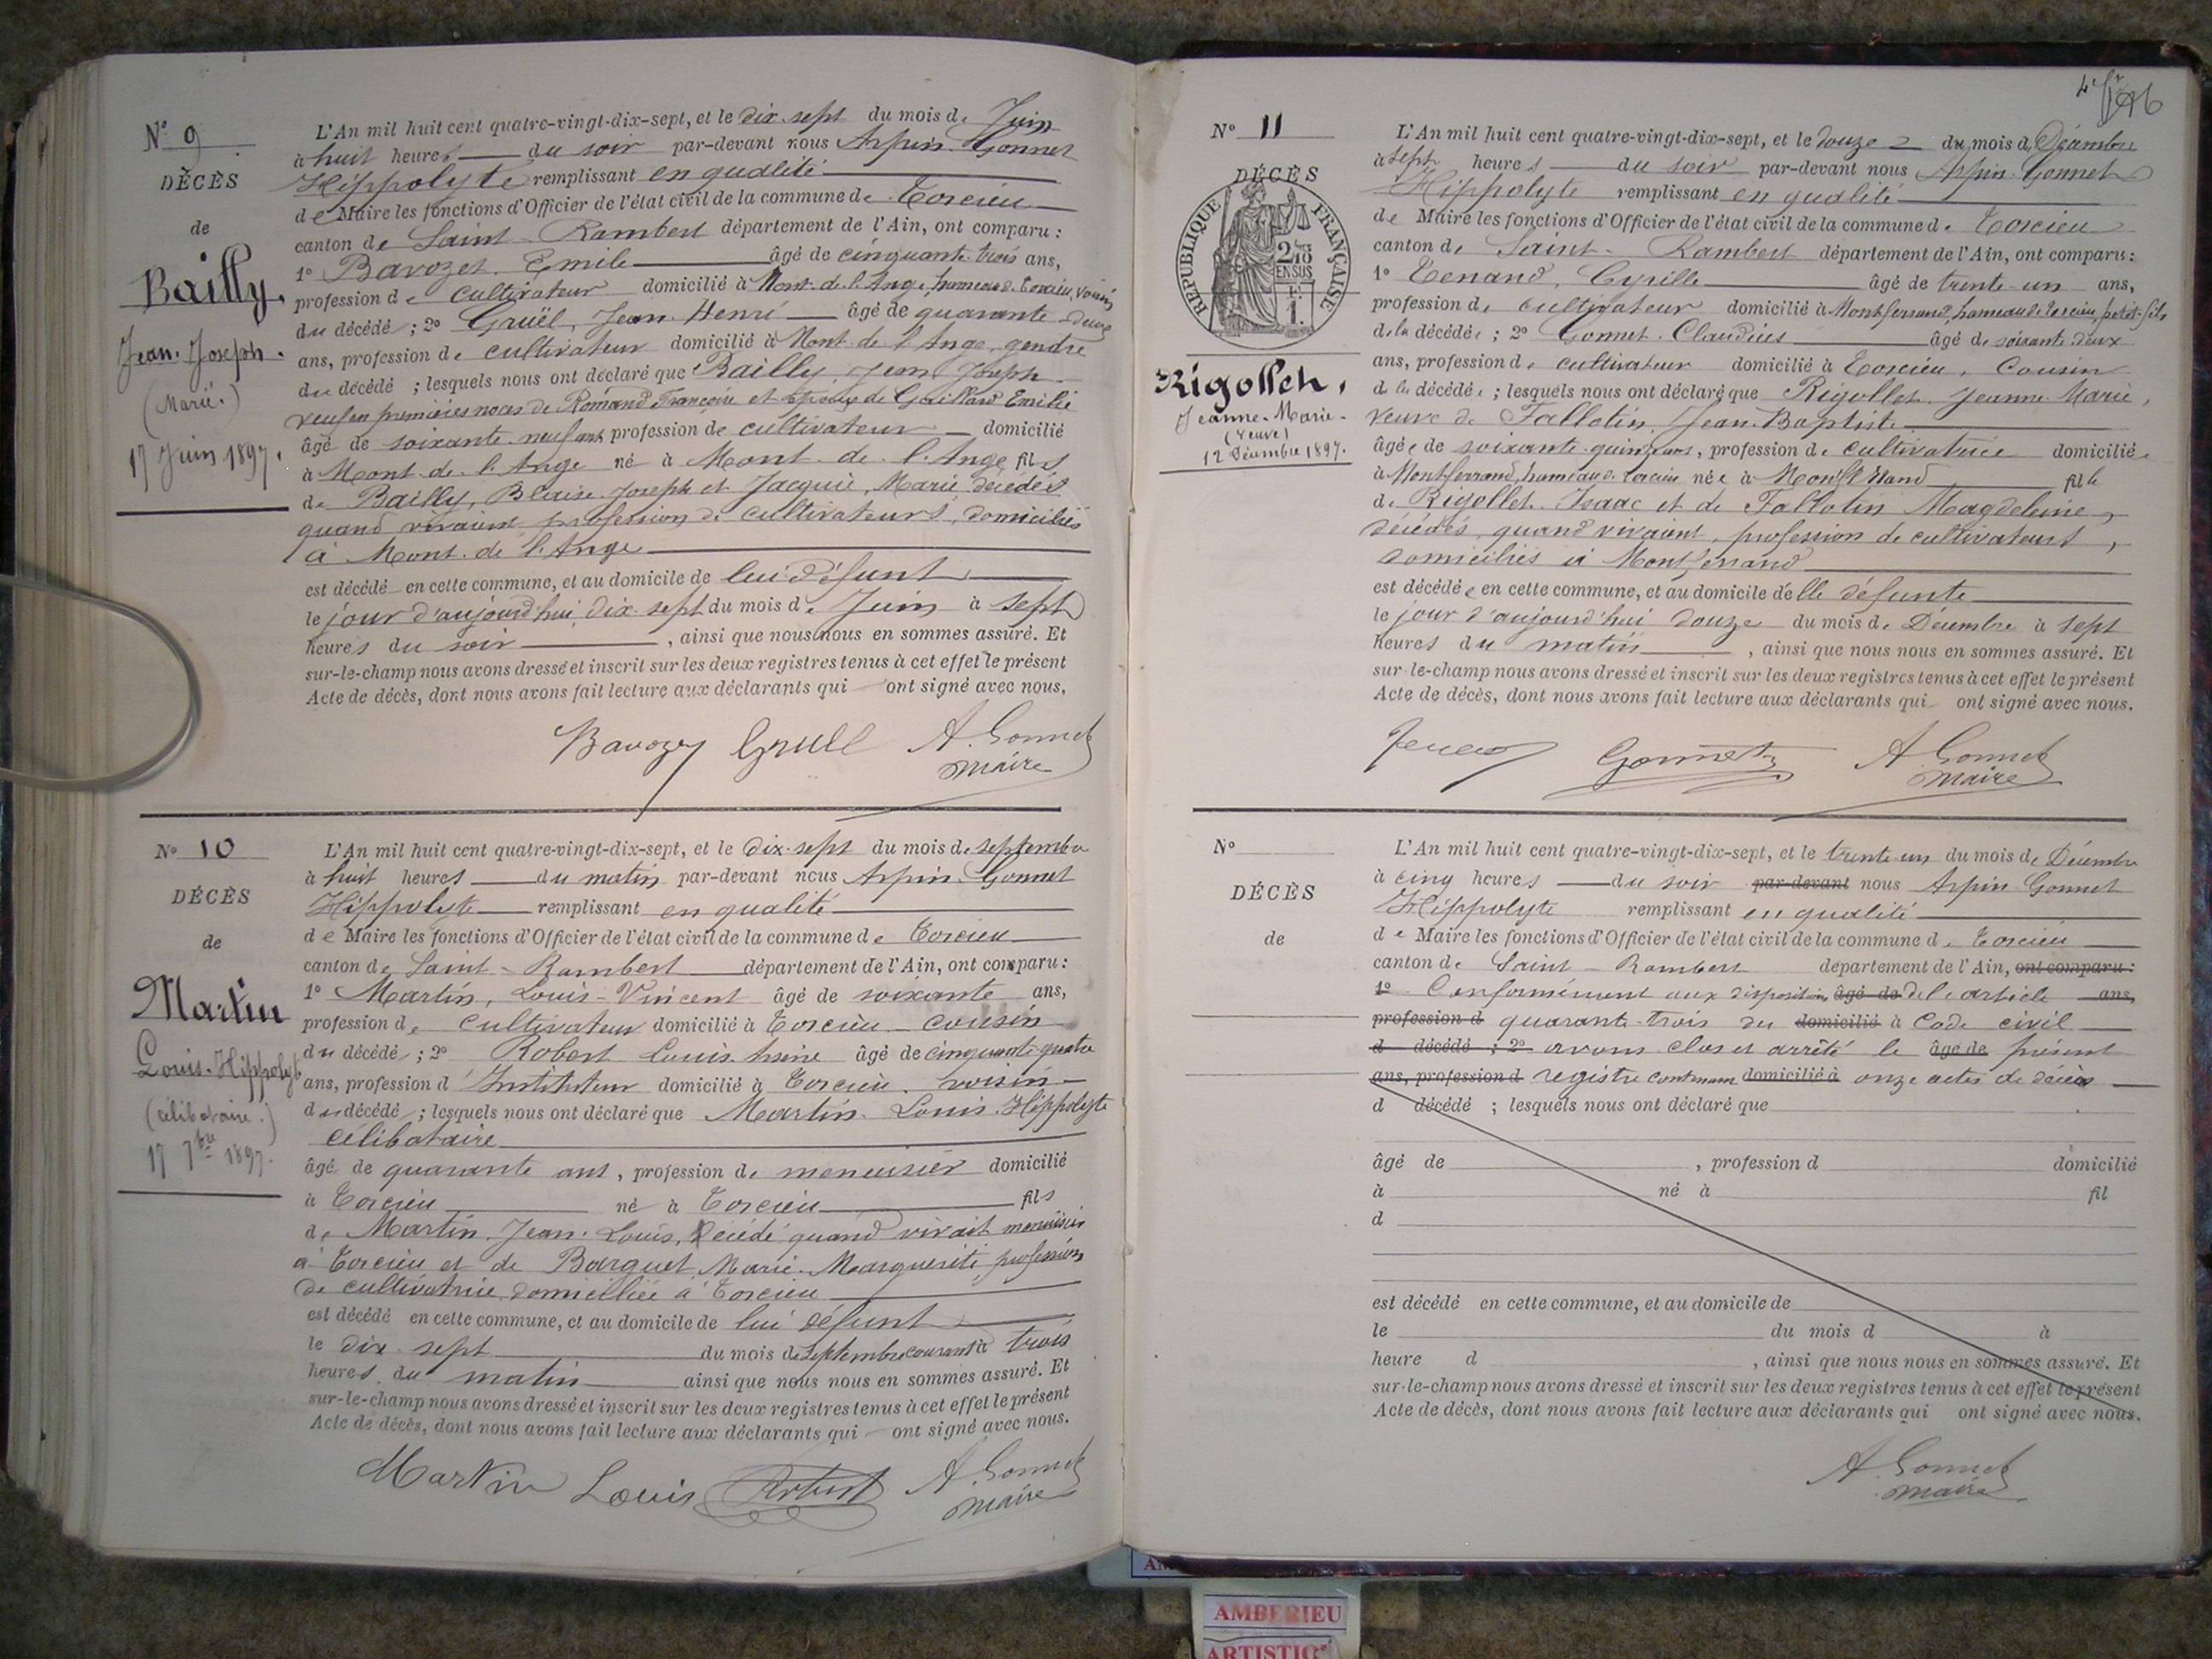 N° 9
DÉCÈS
de
Bailly,
Jean-Joseph.
(Marié.)
17 Juin 1897.
L'An mil huit cent quatre-vingt-dix-sept, et le dix-sept du mois de Juin
à huit heures du soir par-devant nous Arpin-Gonnet
Hippolyte remplissant en qualité
de Maire les fonctions d'Officier de l'état civil de la commune de Torcieu
canton de Saint-Rambert département de l'Ain, ont comparu :
1° Bavozet, Emile âgé de cinquante-trois ans,
profession de cultivateur domicilié à Mont-de-l'Ange, hameau de Torcieu, voisin
du décédé ; 2° Gruël, Jean-Henri âgé de quarante-deux
ans, profession de cultivateur domicilié à Mont-de-l'Ange, gendre
du décédé ; lesquels nous ont déclaré que Bailly, Jean-Joseph
veuf en premières noces de Romand Françoise et époux de Gaillard Emilie
âgé de soixante-neuf ans profession de cultivateur domicilié
à Mont-de-l'Ange né à Mont-de-l'Ange fils
de Bailly, Blaise-Joseph et Jacquie, Marie, décédés
quand vivaient profession de cultivateurs, domiciliés
à Mont-de-l'Ange
est décédé en cette commune, et au domicile de lui défunt
le jour d'aujourd'hui dix-sept du mois de Juin à sept
heures du soir , ainsi que nous nous en sommes assuré. Et
sur-le-champ nous avons dressé et inscrit sur les deux registres tenus à cet effet le présent
Acte de décès, dont nous avons fait lecture aux déclarants qui ont signé avec nous.
Bavozet Gruël A. Gonnet
Maire
N° 10
DÉCÈS
de
Martin
Louis-Hippolyte
(célibataire.)
17 7bre 1897.
L'An mil huit cent quatre-vingt-dix-sept, et le dix-sept du mois de septembre
à huit heures du matin par-devant nous Arpin-Gonnet
Hippolyte remplissant en qualité
de Maire les fonctions d'Officier de l'état civil de la commune de Torcieu
canton de Saint-Rambert département de l'Ain, ont comparu :
1° Martin, Louis-Vincent âgé de soixante ans,
profession de cultivateur domicilié à Torcieu cousin
du décédé ; 2° Robert Louis âgé de cinquante-quatre
ans, profession d'Instituteur domicilié à Torcieu, voisin
du décédé ; lesquels nous ont déclaré que Martin Louis-Hippolyte
célibataire
âgé de quarante ans, profession de menuisier domicilié
à Torcieu né à Torcieu fils
de Martin Jean-Louis, décédé quand vivait menuisier
à Torcieu et de Barquet Marie-Marguerite profession
de cultivatrice, domiciliée à Torcieu
est décédé en cette commune, et au domicile de lui défunt
le dix-sept du mois de septembre courant à trois
heures du matin ainsi que nous nous en sommes assuré. Et
sur-le-champ nous avons dressé et inscrit sur les deux registres tenus à cet effet le présent
Acte de décès, dont nous avons fait lecture aux déclarants qui ont signé avec nous.
Martin Louis Robert A. Gonnet
Maire
N° 11
DÉCÈS
RÉPUBLIQUE FRANÇAISE
Rigollet,
Jeanne-Marie
(Veuve)
12 Décembre 1897.
L'An mil huit cent quatre-vingt-dix-sept, et le douze du mois de Décembre
à sept heures du soir par-devant nous Arpin-Gonnet
Hippolyte remplissant en qualité
de Maire les fonctions d'Officier de l'état civil de la commune de Torcieu
canton de Saint-Rambert département de l'Ain, ont comparu :
1° Tenand, Cyrille âgé de trente-un ans,
profession de cultivateur domicilié à Montferrand, hameau de Torcieu, petit-fils
de la décédée ; 2° Gonnet Claudius âgé de soixante-deux
ans, profession de cultivateur domicilié à Torcieu, Cousin
de la décédée ; lesquels nous ont déclaré que Rigollet, Jeanne-Marie,
veuve de Fallotin Jean-Baptiste
âgée de soixante-quinze ans, profession de cultivatrice domiciliée
à Montferrand, hameau de Torcieu née à Montferrand fille
de Rigollet Isaac et de Fallotin Magdeleine,
décédés, quand vivaient, profession de cultivateurs,
domiciliés à Montferrand
est décédée en cette commune, et au domicile d'elle défunte
le jour d'aujourd'hui douze du mois de Décembre à sept
heures du matin , ainsi que nous nous en sommes assuré. Et
sur-le-champ nous avons dressé et inscrit sur les deux registres tenus à cet effet le présent
Acte de décès, dont nous avons fait lecture aux déclarants qui ont signé avec nous.
Gonnet A. Gonnet
Maire
N°
DÉCÈS
de
L'An mil huit cent quatre-vingt-dix-sept, et le trente-un du mois de Décembre
à cinq heures du soir par-devant nous Arpin-Gonnet
Hippolyte remplissant en qualité
de Maire les fonctions d'Officier de l'état civil de la commune de Torcieu
canton de Saint-Rambert département de l'Ain, ont comparu :
1° Conformément aux dispositions âgé de de l'article ans,
profession d quarante-trois du domicilié à Code civil
d décédé ; 2° avons clos et arrêté le âgé de présent
ans, profession d registre contenant domicilié à onze actes de décès
d décédé ; lesquels nous ont déclaré que
âgé de , profession d domicilié
à né à fil
d
est décédé en cette commune, et au domicile de
le du mois d à
heure d , ainsi que nous nous en sommes assuré. Et
sur-le-champ nous avons dressé et inscrit sur les deux registres tenus à cet effet le présent
Acte de décès, dont nous avons fait lecture aux déclarants qui ont signé avec nous.
A. Gonnet
Maire
AMBERIEU
ARTISTIC